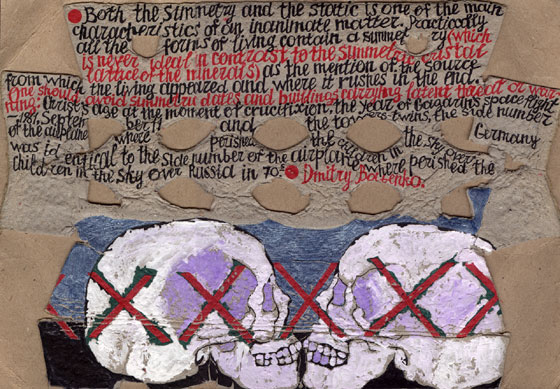 Both the Simmetry and the static is one of the main
characteristics of an inanimate matter. Practically
all the forms of living contain a summetry (which
is never ideal in contrast to the Summetry cristall
lattace of the minerals) as the mention of the source
from which the living appeared and where it rushes in the end.
One should avoid summetru dates and buildings carrying latent threat or war-
ning: Christ's age at the moment of crucifixion, the year of Gagarin's space flight
1961, September 11 and the towers-twins, the side number
of the airplane where perished the children in the sky over Germany
was identical to the side number of the airplane where perished the
children in the sky over Russia in 70s
Dmitry Babenko.
XXXXXXX